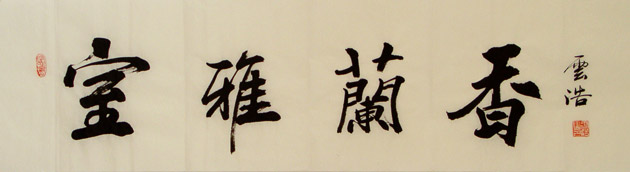 室雅蘭香
雲浩